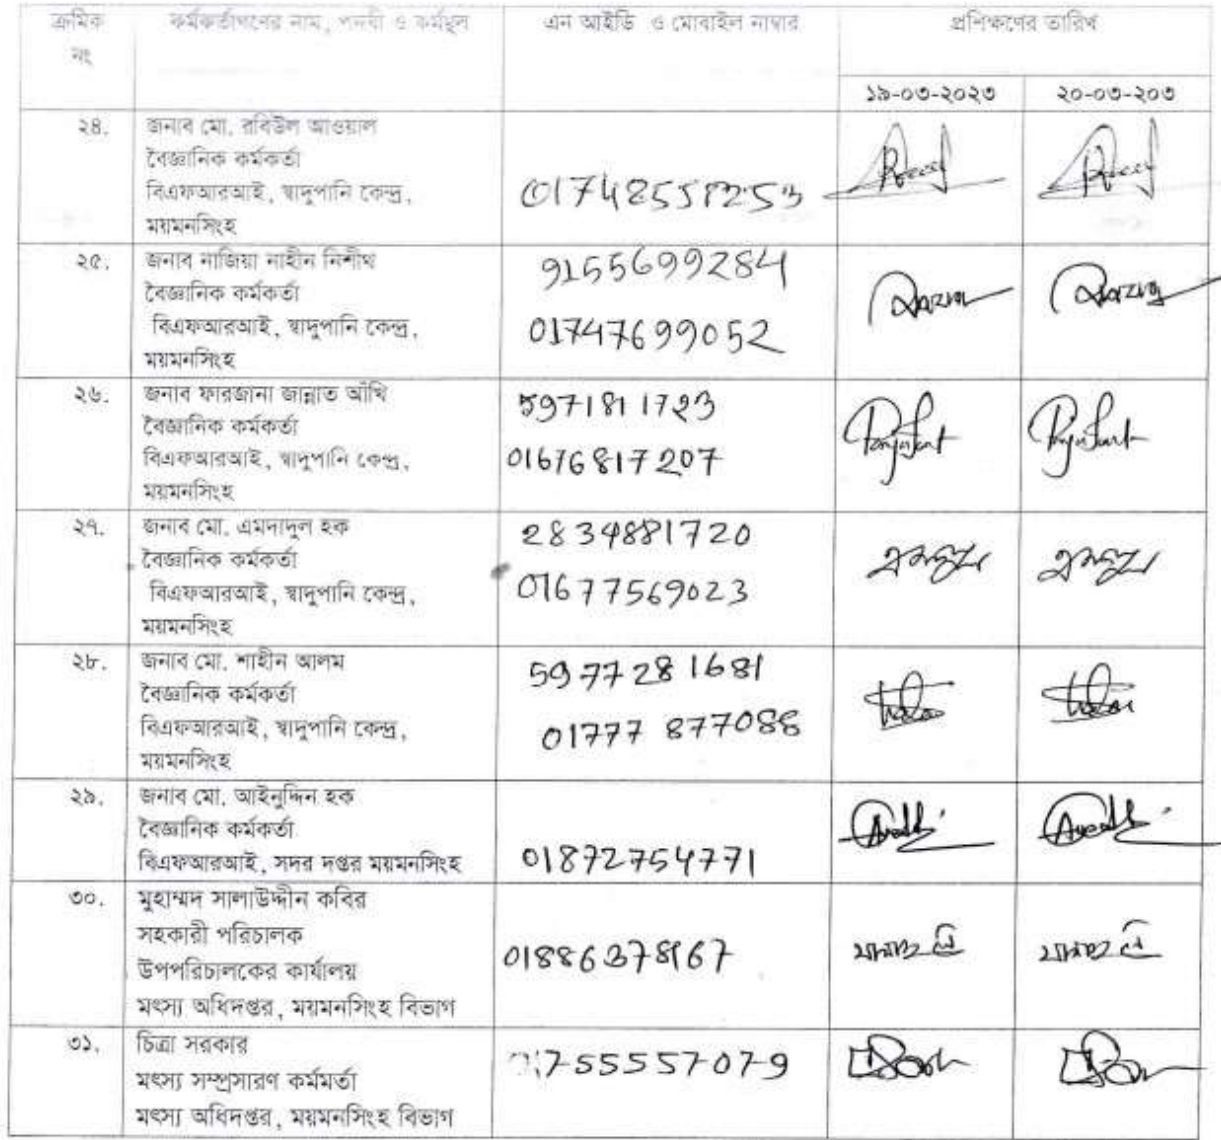 ক্রমিক নং
কর্মকর্তাগণের নাম, পদবী ও কর্মস্থল
এন আইডি ও মোবাইল নাম্বার
প্রশিক্ষণের তারিখ
১৯-০৩-২০২৩
২০-০৩-২০৩
২৪.
জনাব মো. রবিউল আওয়াল
বৈজ্ঞানিক কর্মকর্তা
বিএফআরআই, স্বাদুপানি কেন্দ্র,
ময়মনসিংহ
২৫.
জনাব নাজিয়া নাহীন নিশীথ
বৈজ্ঞানিক কর্মকর্তা
বিএফআরআই, স্বাদুপানি কেন্দ্র,
ময়মনসিংহ
9155699284
01747699052
২৬.
জনাব ফারজানা জান্নাত আঁখি
বৈজ্ঞানিক কর্মকর্তা
বিএফআরআই, স্বাদুপানি কেন্দ্র,
ময়মনসিংহ
5971811723
01676817207
২৭.
জনাব মো. এমদাদুল হক
বৈজ্ঞানিক কর্মকর্তা
বিএফআরআই, স্বাদুপানি কেন্দ্র,
ময়মনসিংহ
2834881720
01677569023
২৮.
জনাব মো. শাহীন আলম
বৈজ্ঞানিক কর্মকর্তা
বিএফআরআই, স্বাদুপানি কেন্দ্র,
ময়মনসিংহ
5977281681
01777 877088
২৯.
জনাব মো. আইনুদ্দিন হক
বৈজ্ঞানিক কর্মকর্তা
বিএফআরআই, সদর দপ্তর ময়মনসিংহ
01872754771
৩০.
মুহাম্মদ সালাউদ্দীন কবির
সহকারী পরিচালক
উপপরিচালকের কার্যালয়
মৎস্য অধিদপ্তর, ময়মনসিংহ বিভাগ
01886378167
৩১.
চিত্রা সরকার
মৎস্য সম্প্রসারণ কর্মমর্তা
মৎস্য অধিদপ্তর, ময়মনসিংহ বিভাগ
01755557079